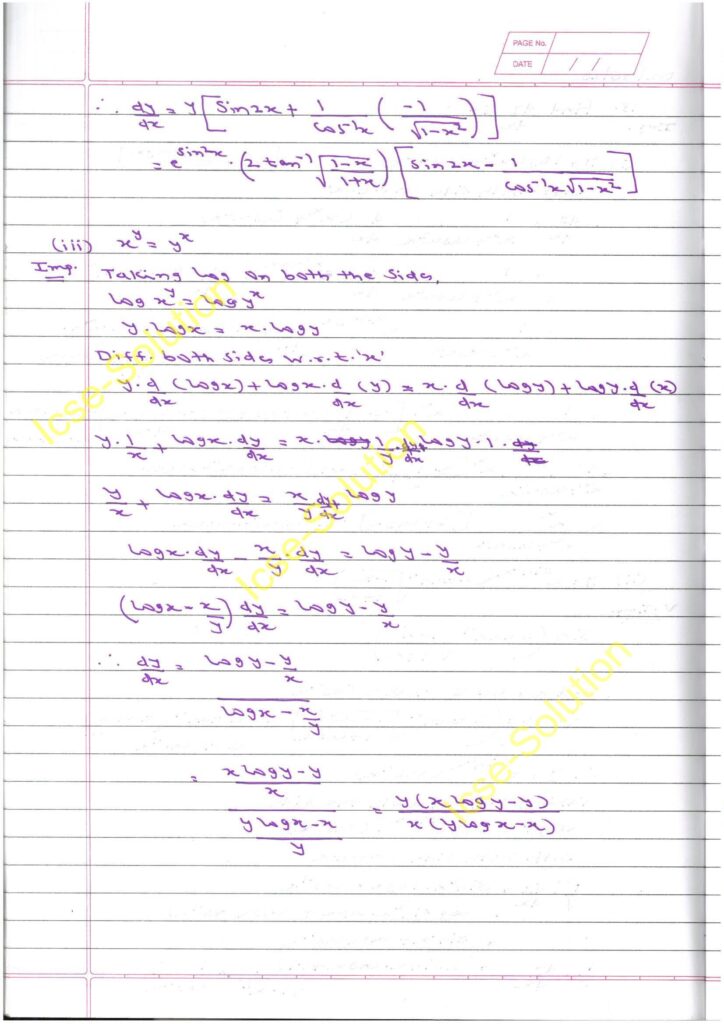 PAGE No.
DATE / /
∴ dy/dx = y [ Sin2x + 1/cos⁻¹x ( -1/√1-x² ) ]
= e^sin²x · (2 tan⁻¹ √(1-x)/(1+x)) [ sin2x - 1/cos⁻¹x√1-x² ]
(iii) x^y = y^x
Imp. Taking log on both the sides,
log x^y = log y^x
y·logx = x·logy
Diff. both sides w.r.t. 'x'
y·d/dx (logx) + logx·d/dx (y) = x·d/dx (logy) + logy·d/dx (x)
y·1/x + logx·dy/dx = x·1/y·dy/dx + logy·1
y/x + logx·dy/dx = x/y dy/dx + logy
logx·dy/dx - x/y·dy/dx = logy - y/x
(logx - x/y) dy/dx = logy - y/x
∴ dy/dx = logy - y/x / logx - x/y
= xlogy-y/x / ylogx-x/y = y(xlogy-y)/x(ylogx-x)
Icse-Solution
Icse-Solution
Icse-Solution